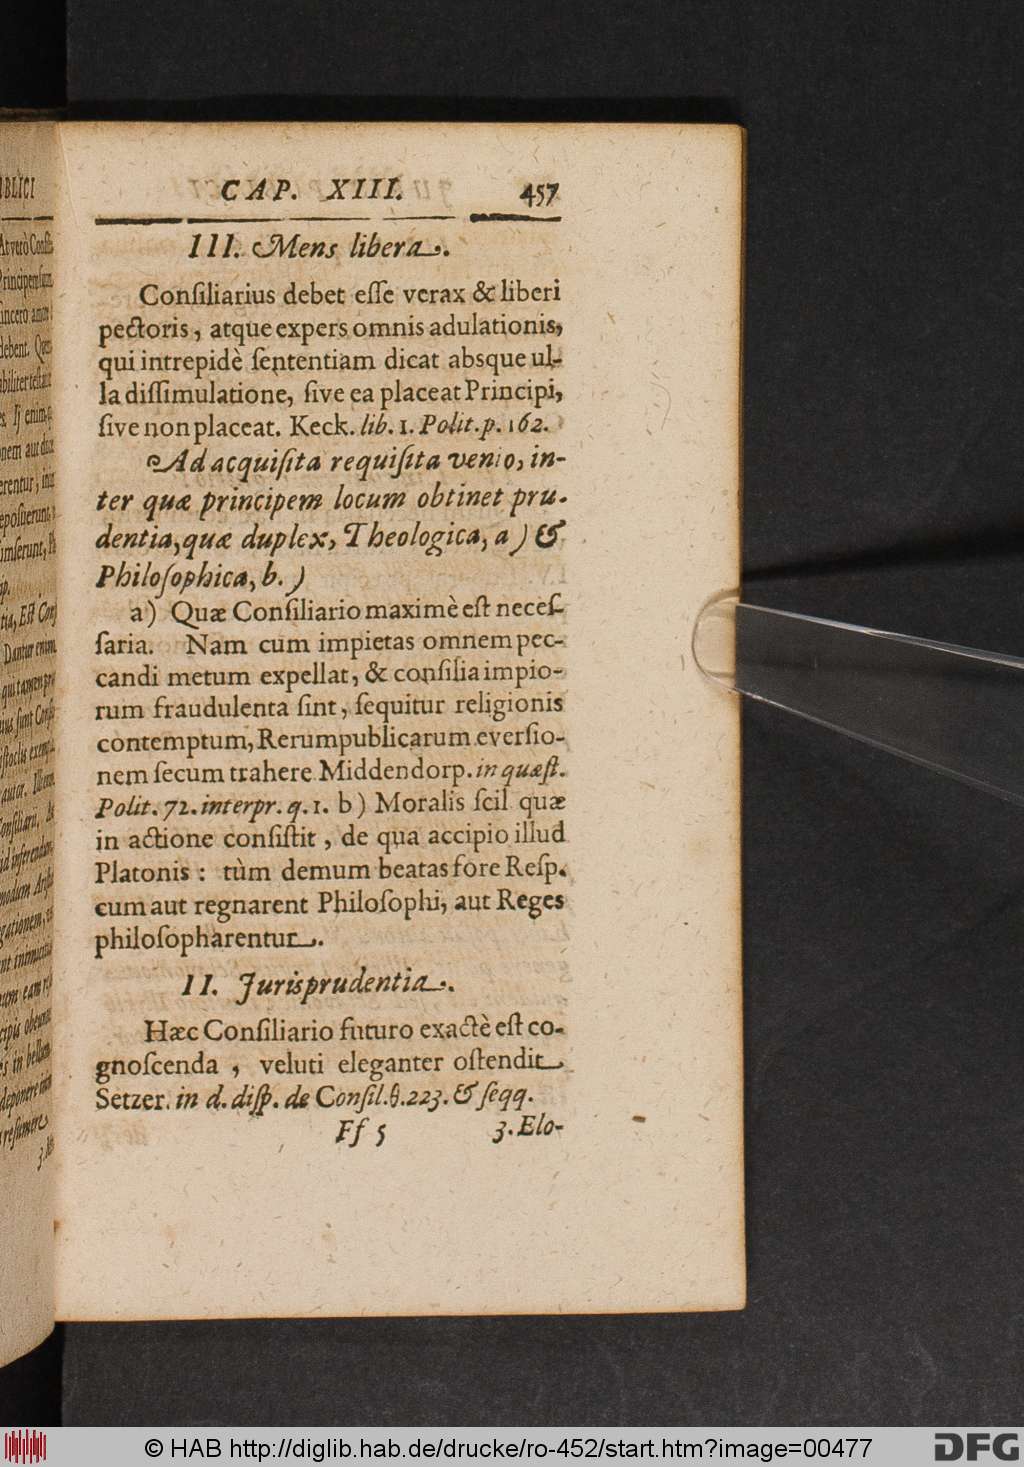 CAP. XIII. 457
III. Mens libera.
Conſiliarius debet eſſe verax & liberi
pectoris, atque expers omnis adulationis,
qui intrepidè ſententiam dicat absque ul-
la diſſimulatione, ſive ea placeat Principi,
ſive non placeat. Keck. lib. 1. Polit. p. 162.
Ad acquiſita requiſita venio, in-
ter quæ principem locum obtinet pru-
dentia, quæ duplex, Theologica, a) &
Philoſophica, b.)
a) Quæ Conſiliario maximè eſt neceſ-
ſaria. Nam cum impietas omnem pec-
candi metum expellat, & conſilia impio-
rum fraudulenta ſint, ſequitur religionis
contemptum, Rerumpublicarum everſio-
nem ſecum trahere Middendorp. in quæſt.
Polit. 72. interpr. q. 1. b) Moralis ſcil quæ
in actione conſiſtit, de qua accipio illud
Platonis: tùm demum beatas fore Reſp.
cum aut regnarent Philoſophi, aut Reges
philoſopharentur.
II. Jurisprudentia.
Hæc Conſiliario futuro exactè eſt co-
gnoſcenda, veluti eleganter oſtendit
Setzer. in d. diſp. de Conſil. §. 223. & ſeqq.
Ff 5 3. Elo-
IBLICI
At verò Conſi
Principem ſuum
ſincero amor
debent.
© HAB http://diglib.hab.de/drucke/ro-452/start.htm?image=00477
DFG